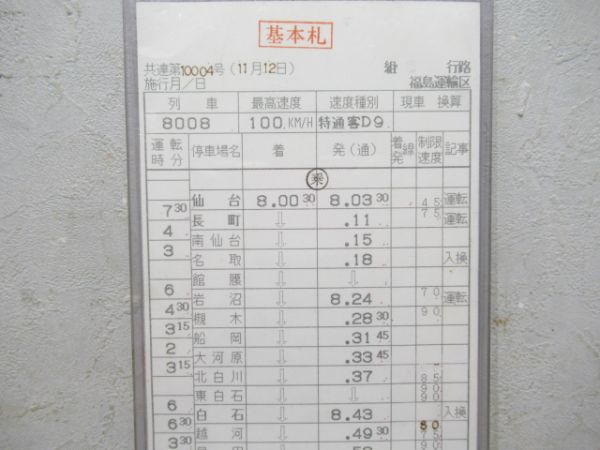 基本札
共達第10004号(11月12日) 組 行路
施行月/日 福島運輸区
列車 最高速度 速度種別 現車 換算
8008 100 KM/H 特通客D9
運転時分 停車場名 着 発(通) 着発線 制限速度 記事
乘
仙台 8.00 30 8.03 30 45 運転
7 30
長町 ↓ .11 75 運転
4
南仙台 ↓ .15
3
名取 ↓ .18 入換
館腰 ↓ ↓
6
岩沼 ↓ 8.24 70 運転
4 30
槻木 ↓ .28 30 90
3 15
船岡 ↓ .31 45
2
大河原 ↓ .33 45
3 15
北白川 ↓ .37 85
東白石 ↓ ↓ 90
90
6
白石 ↓ 8.43 入換
6 30
越河 ↓ .49 30 80
75
3 30
90